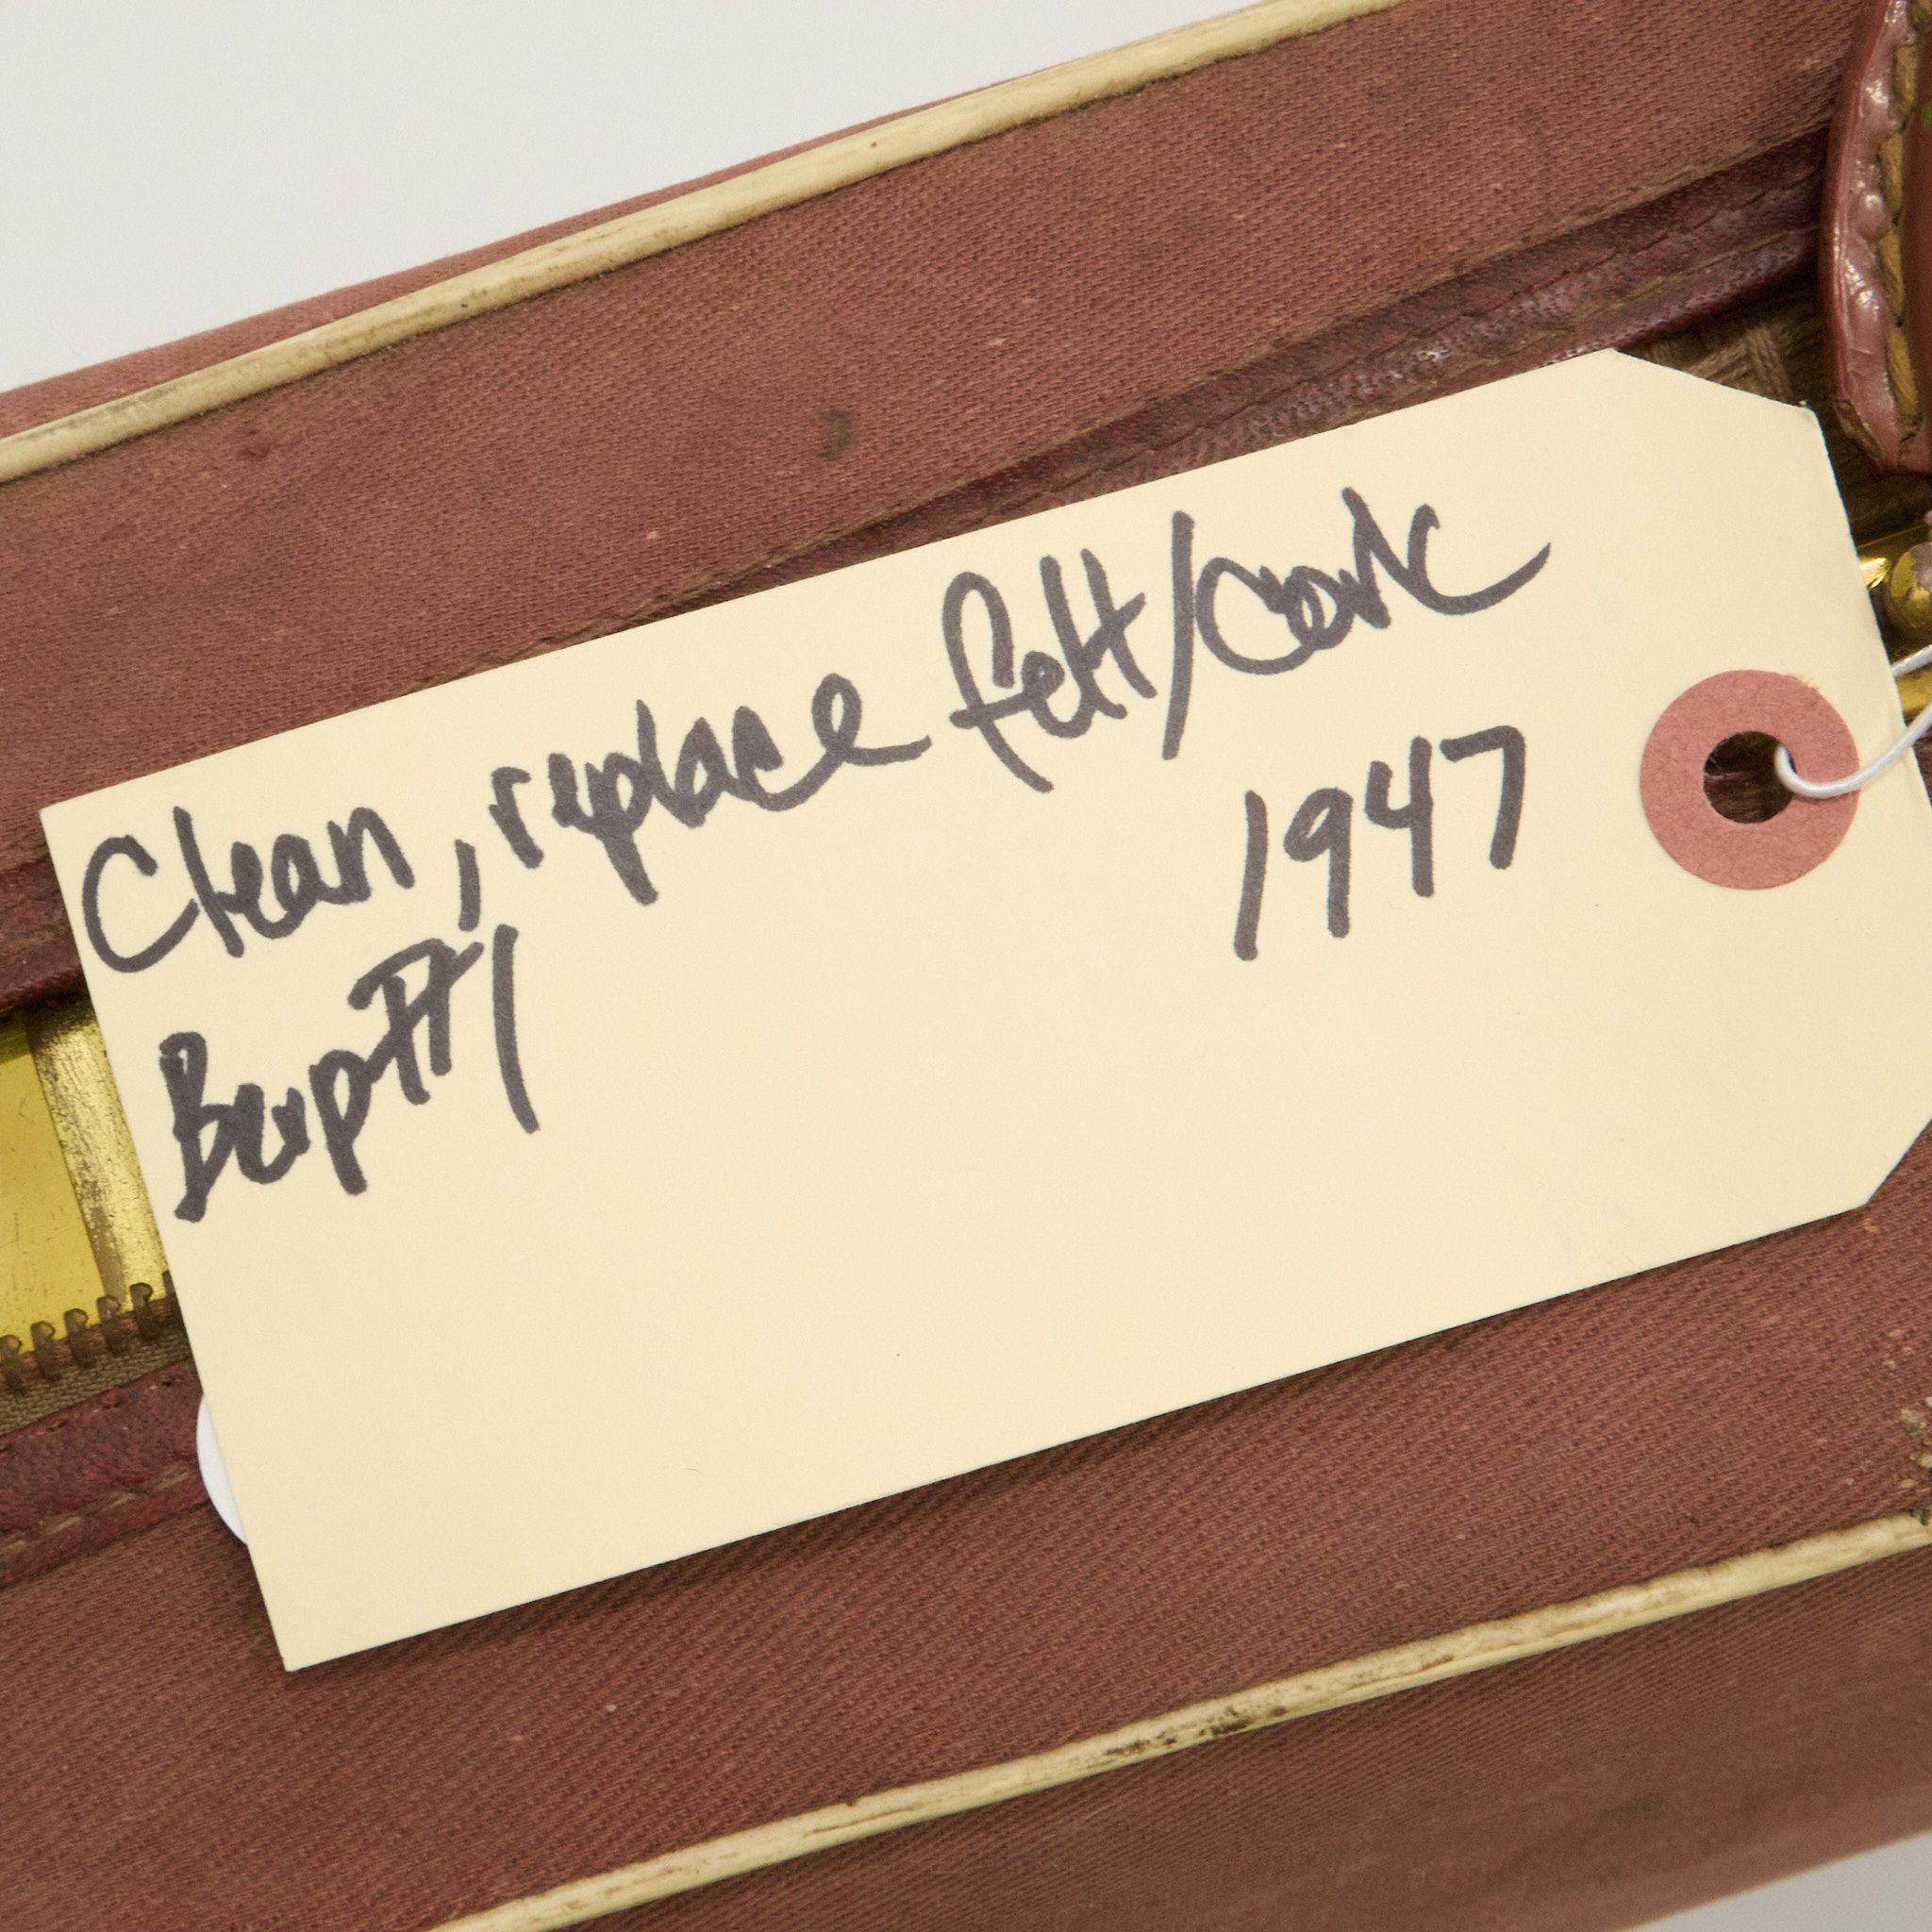 Clean, replace felt/cork
1947